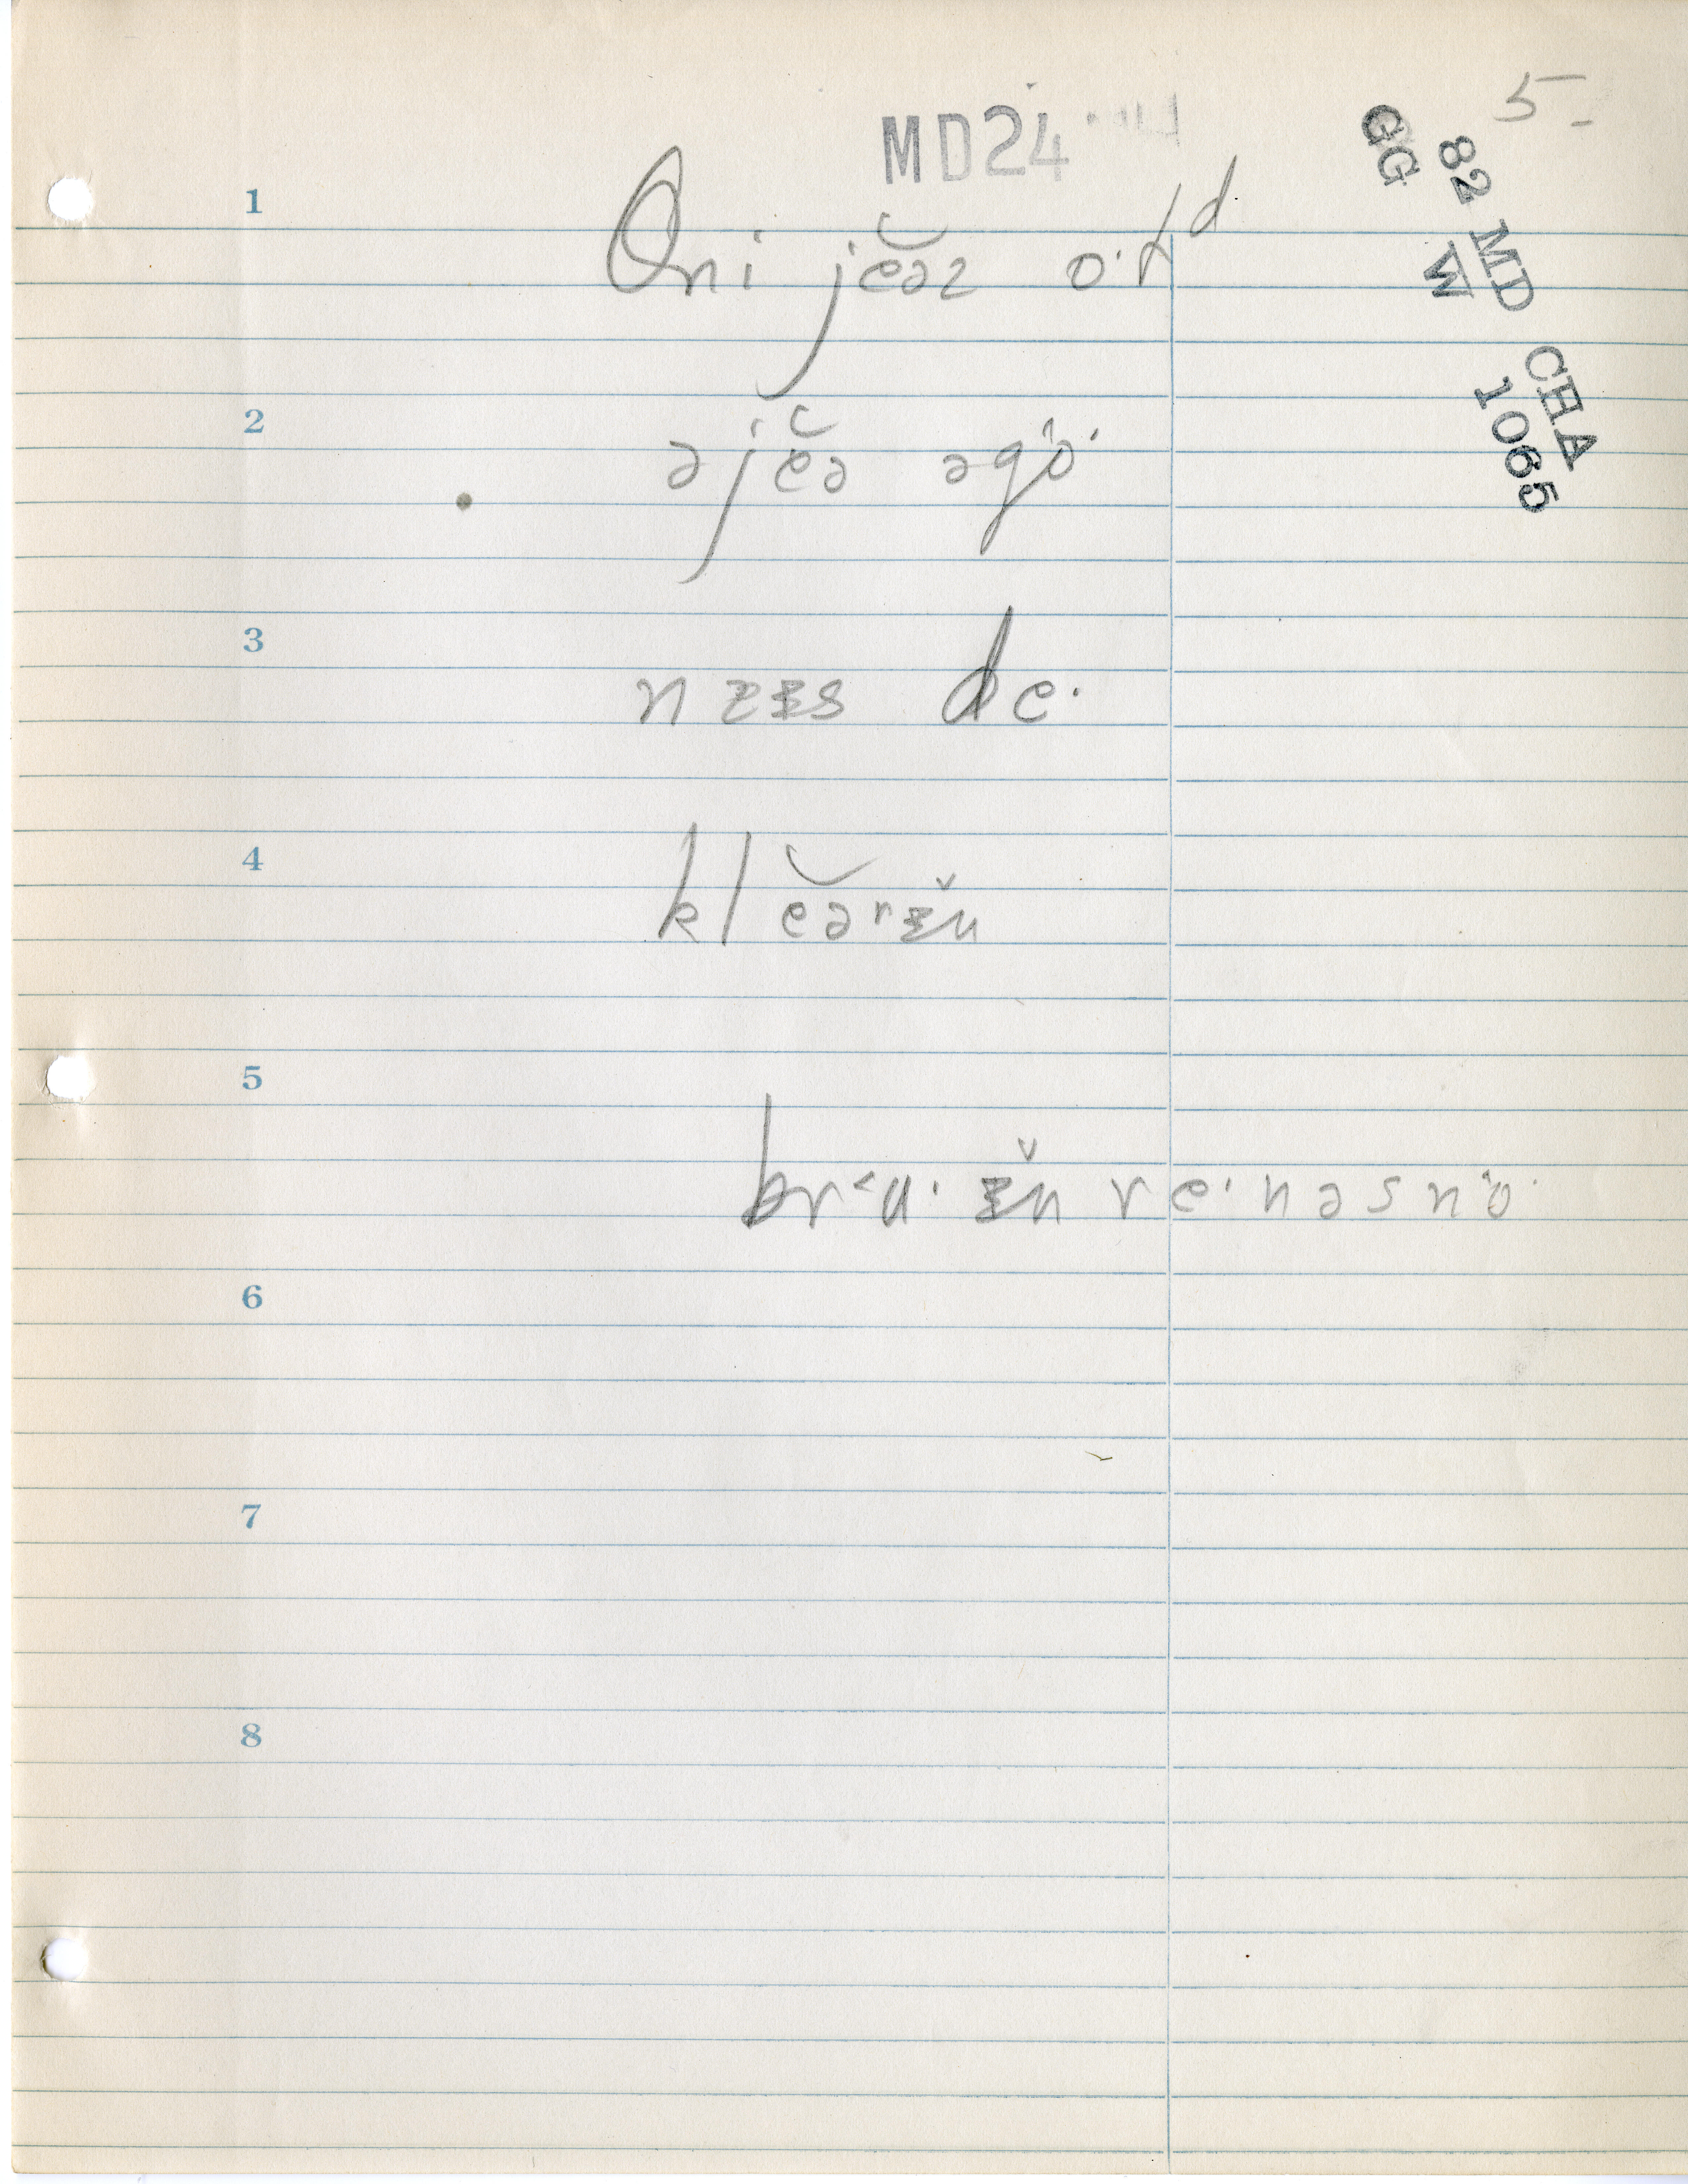 5-
MD24
82 MD CHA
GG W 1065
1
oni jĕəz o·ld
2
əjĕə əgo·
3
nɛɨs de·
4
klĕərɨ̌n
5
br<u· ɨ̌n re·nəsno·
6
7
8